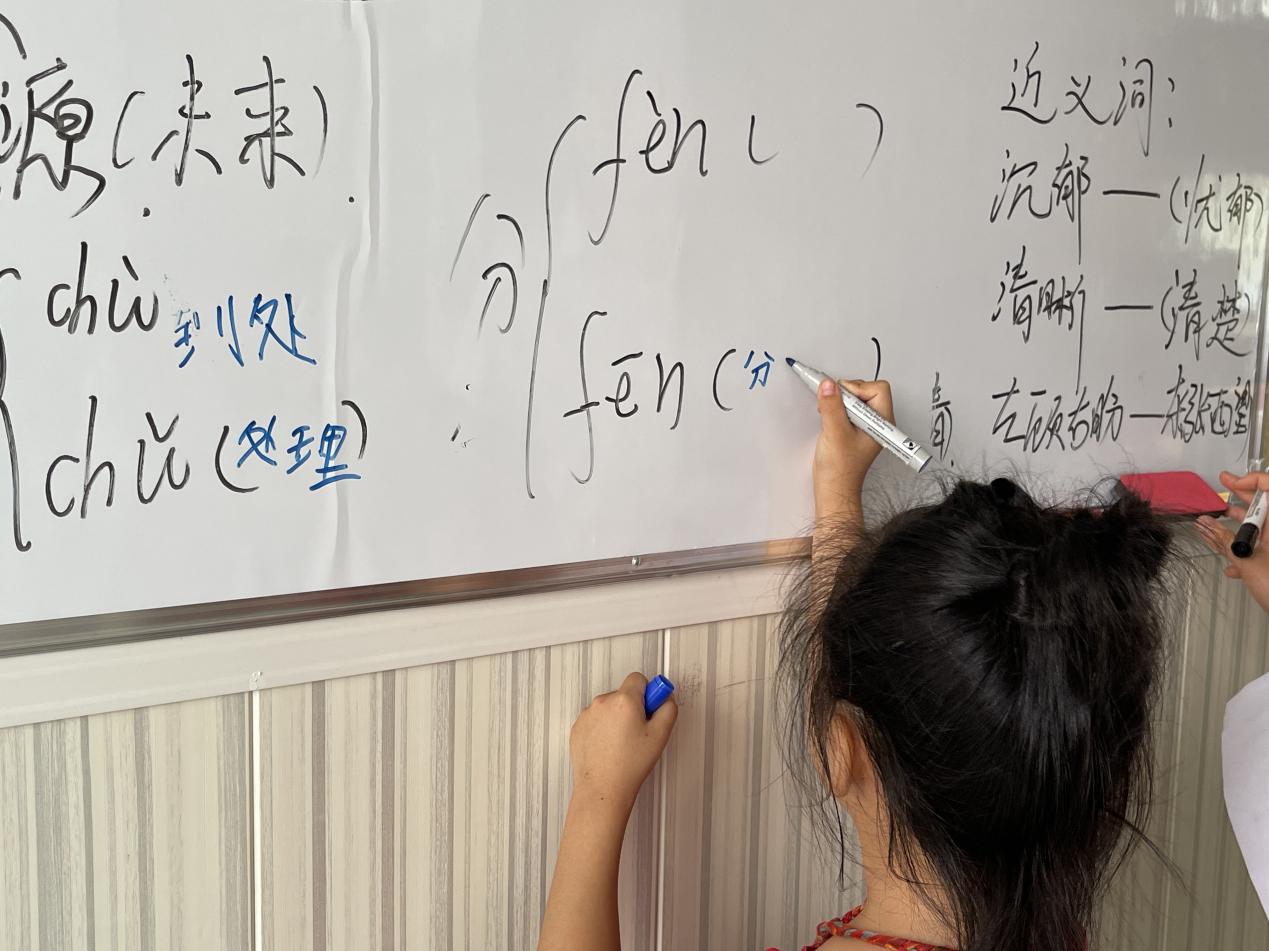 源(未来)
chù 到处
chǔ(处理)
分
fèn( )
fēn(分 )
近义词:
沉郁—(忧郁)
清晰—(清楚)
左顾右盼—东张西望